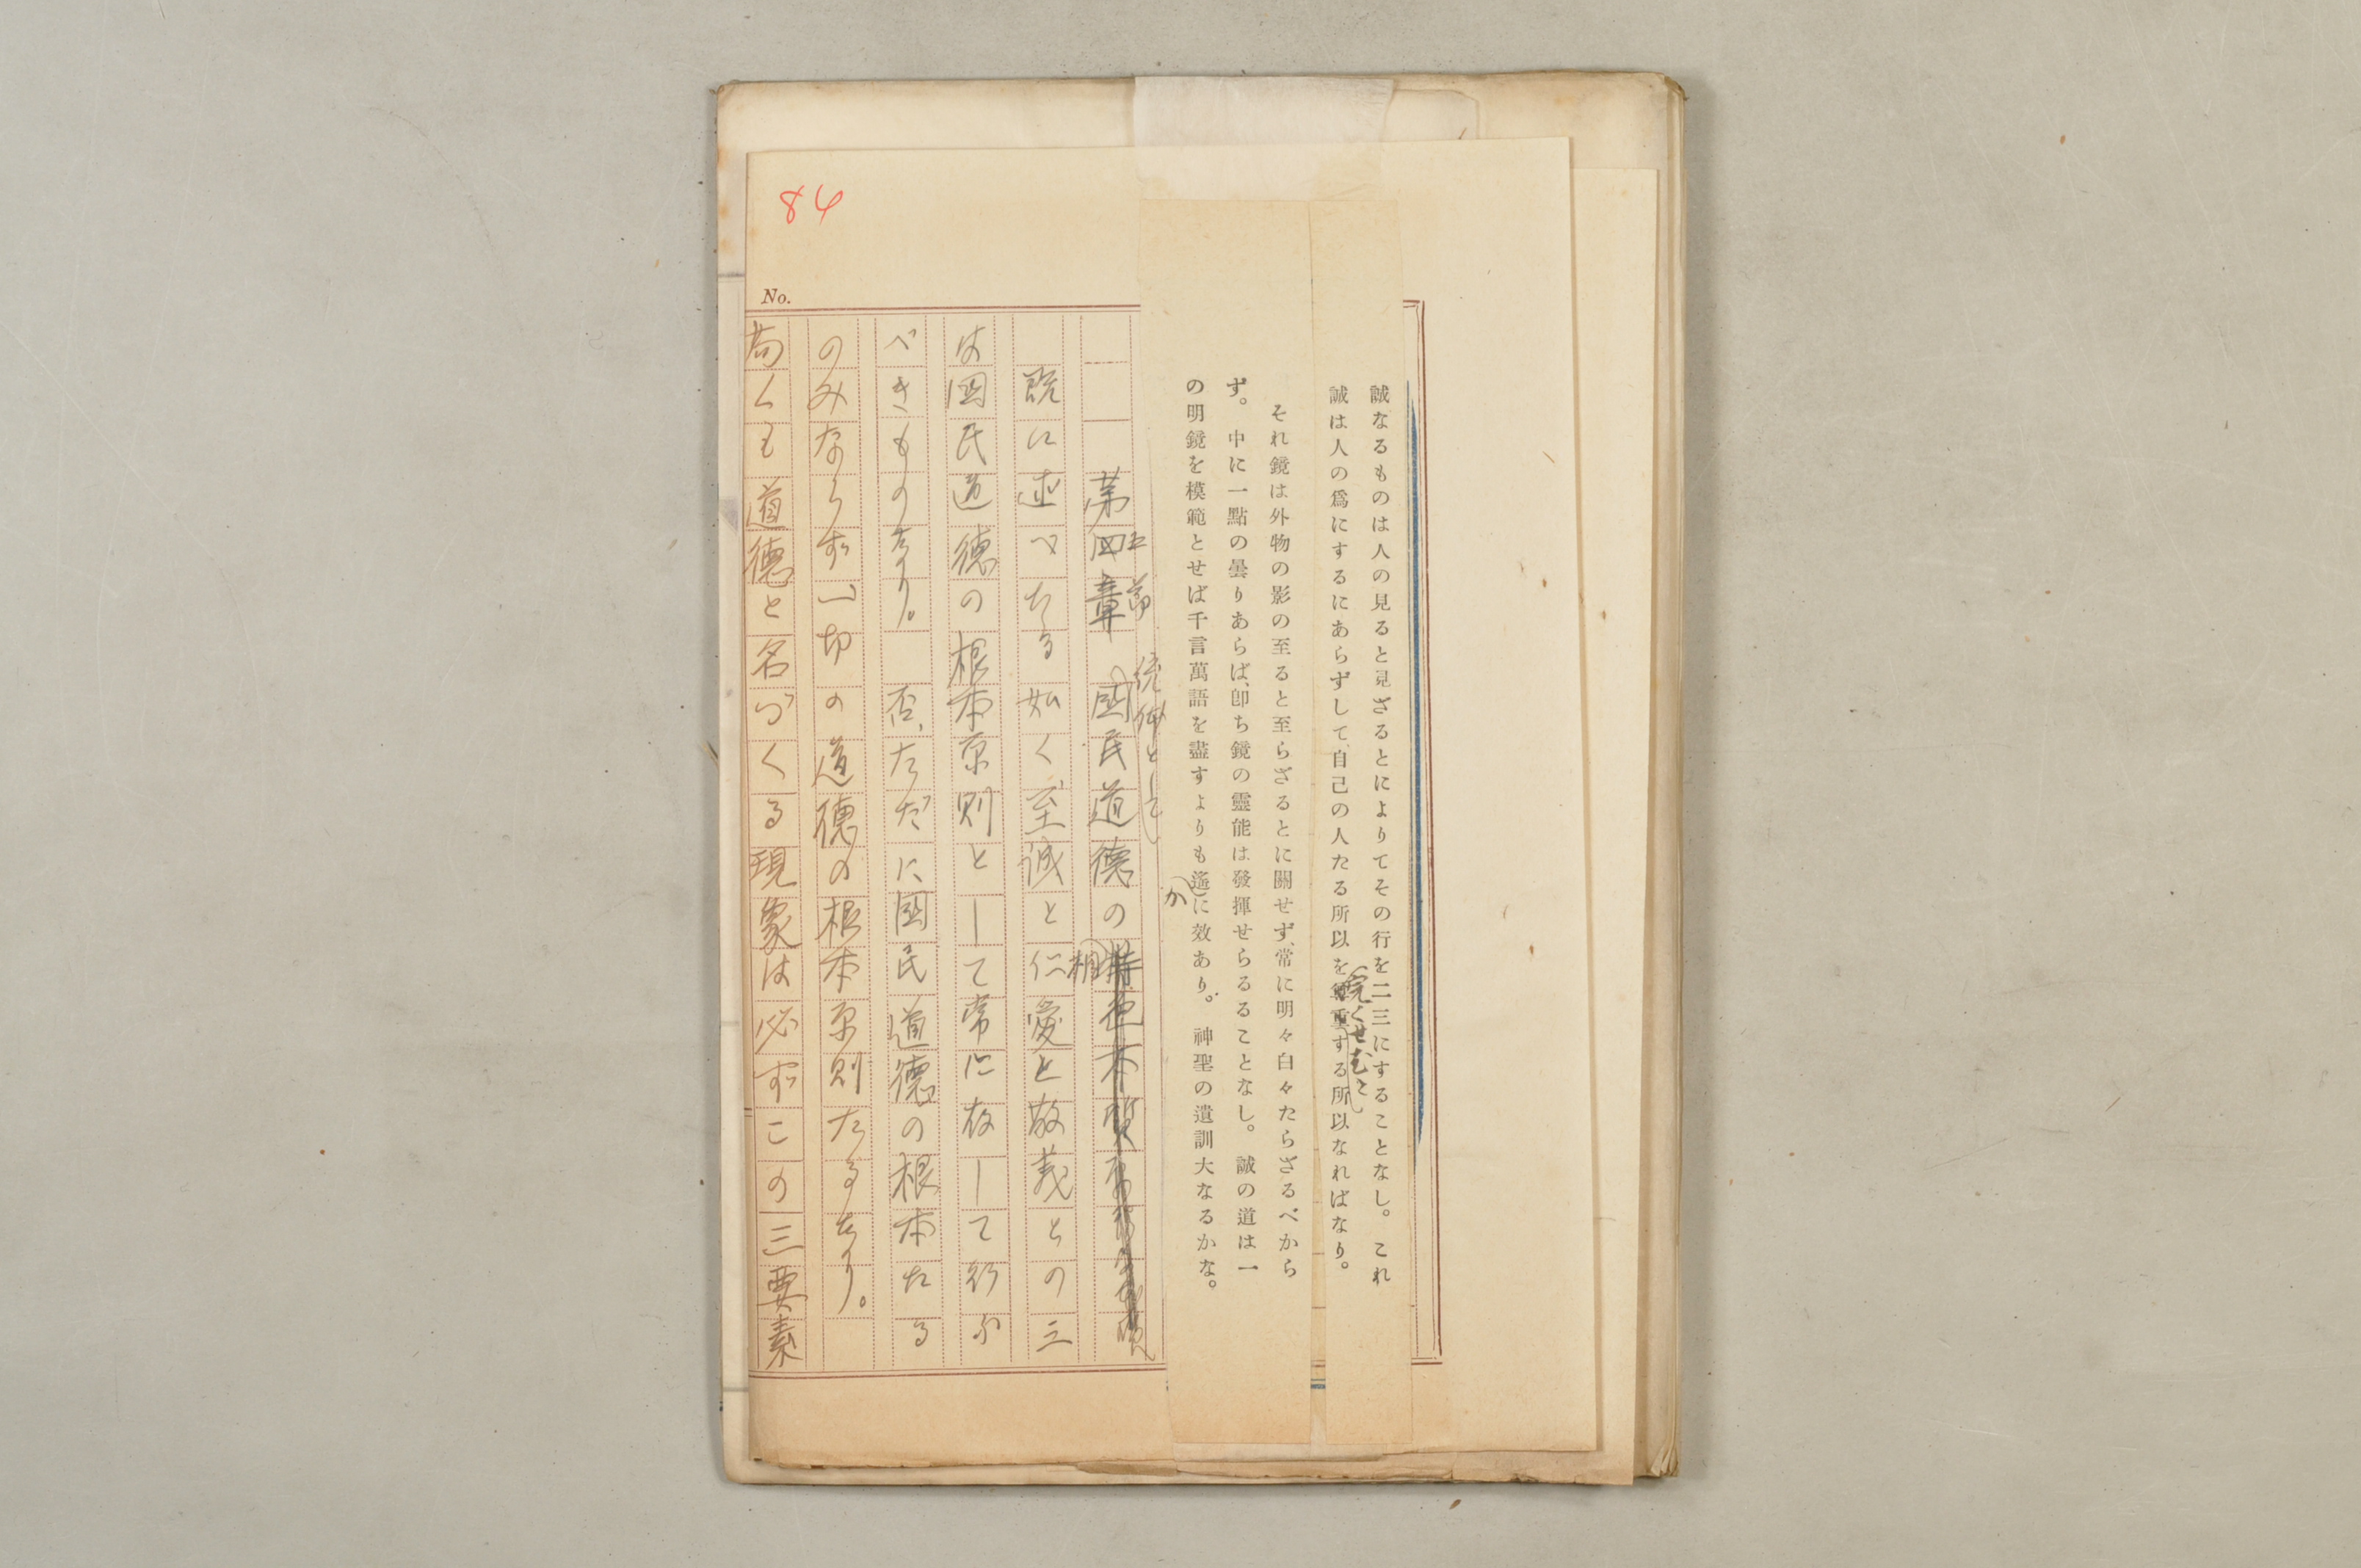 誠なるものは人の見ると見ざるとによりてその行を二三にすることなし。これ
誠は人の爲にするにあらずして、自己の人たる所以を尊重する所以なればなり。
完くせむと
それ鏡は外物の影の至ると至らざるとに關せず、常に明々白々たらざるべから
ず。中に一點の曇りあらば、卽ち鏡の靈能は發揮せらるることなし。誠の道は一
の明鏡を模範とせば千言萬語を盡すよりも遙に效あり。神聖の遺訓大なるかな。
か
五節 統体として
第四章 國民道德の特色本質
相
既に述べたる如く至誠と仁愛と敬義との三
は國民道德の根本原則として常に存して行ふ
べきものなり。 否、ただに國民道德の根本たる
のみならず一切の道德の根本原則たるなり。
苟くも道德と名づくる現象は必ずこの三要素
No.
84